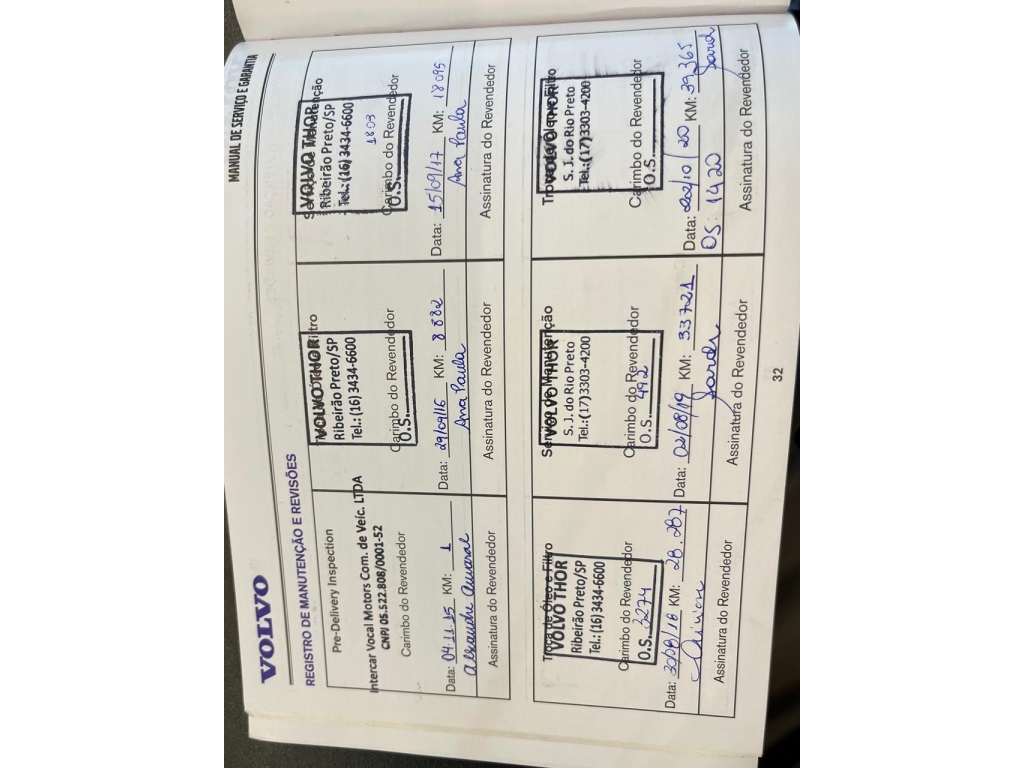 VOLVO
MANUAL DE SERVIÇO E GARANTIA
REGISTRO DE MANUTENÇÃO E REVISÕES
Pre-Delivery Inspection
Intercar Vocal Motors Com. de Veíc. LTDA
CNPJ 05.522.808/0001-52
Carimbo do Revendedor
Data: 04.11.15 KM: 1
Alexandre Amaral
Assinatura do Revendedor
VOLVO THOR
Ribeirão Preto/SP
Tel.: (16) 3434-6600
Carimbo do Revendedor
O.S.
Data: 29/09/16 KM: 8882
Ana Paula
Assinatura do Revendedor
Serviço de Manutenção
VOLVO THOR
Ribeirão Preto/SP
Tel.: (16) 3434-6600
1803
Carimbo do Revendedor
O.S.
Data: 15/09/17 KM: 18095
Ana Paula
Assinatura do Revendedor
Troca de Óleo e Filtro
VOLVO THOR
Ribeirão Preto/SP
Tel.: (16) 3434-6600
Carimbo do Revendedor
O.S. 3274
Data: 30/08/18 KM: 28.287
Assinatura do Revendedor
Serviço de Manutenção
VOLVO THOR
S. J. do Rio Preto
Tel.: (17) 3303-4200
Carimbo do Revendedor
O.S. 492
Data: 02/08/19 KM: 33721
Assinatura do Revendedor
Troca de Óleo e Filtro
VOLVO THOR
S. J. do Rio Preto
Tel.: (17) 3303-4200
Carimbo do Revendedor
O.S.
Data: /10/20 KM: 39365
OS: 1420
Assinatura do Revendedor
32